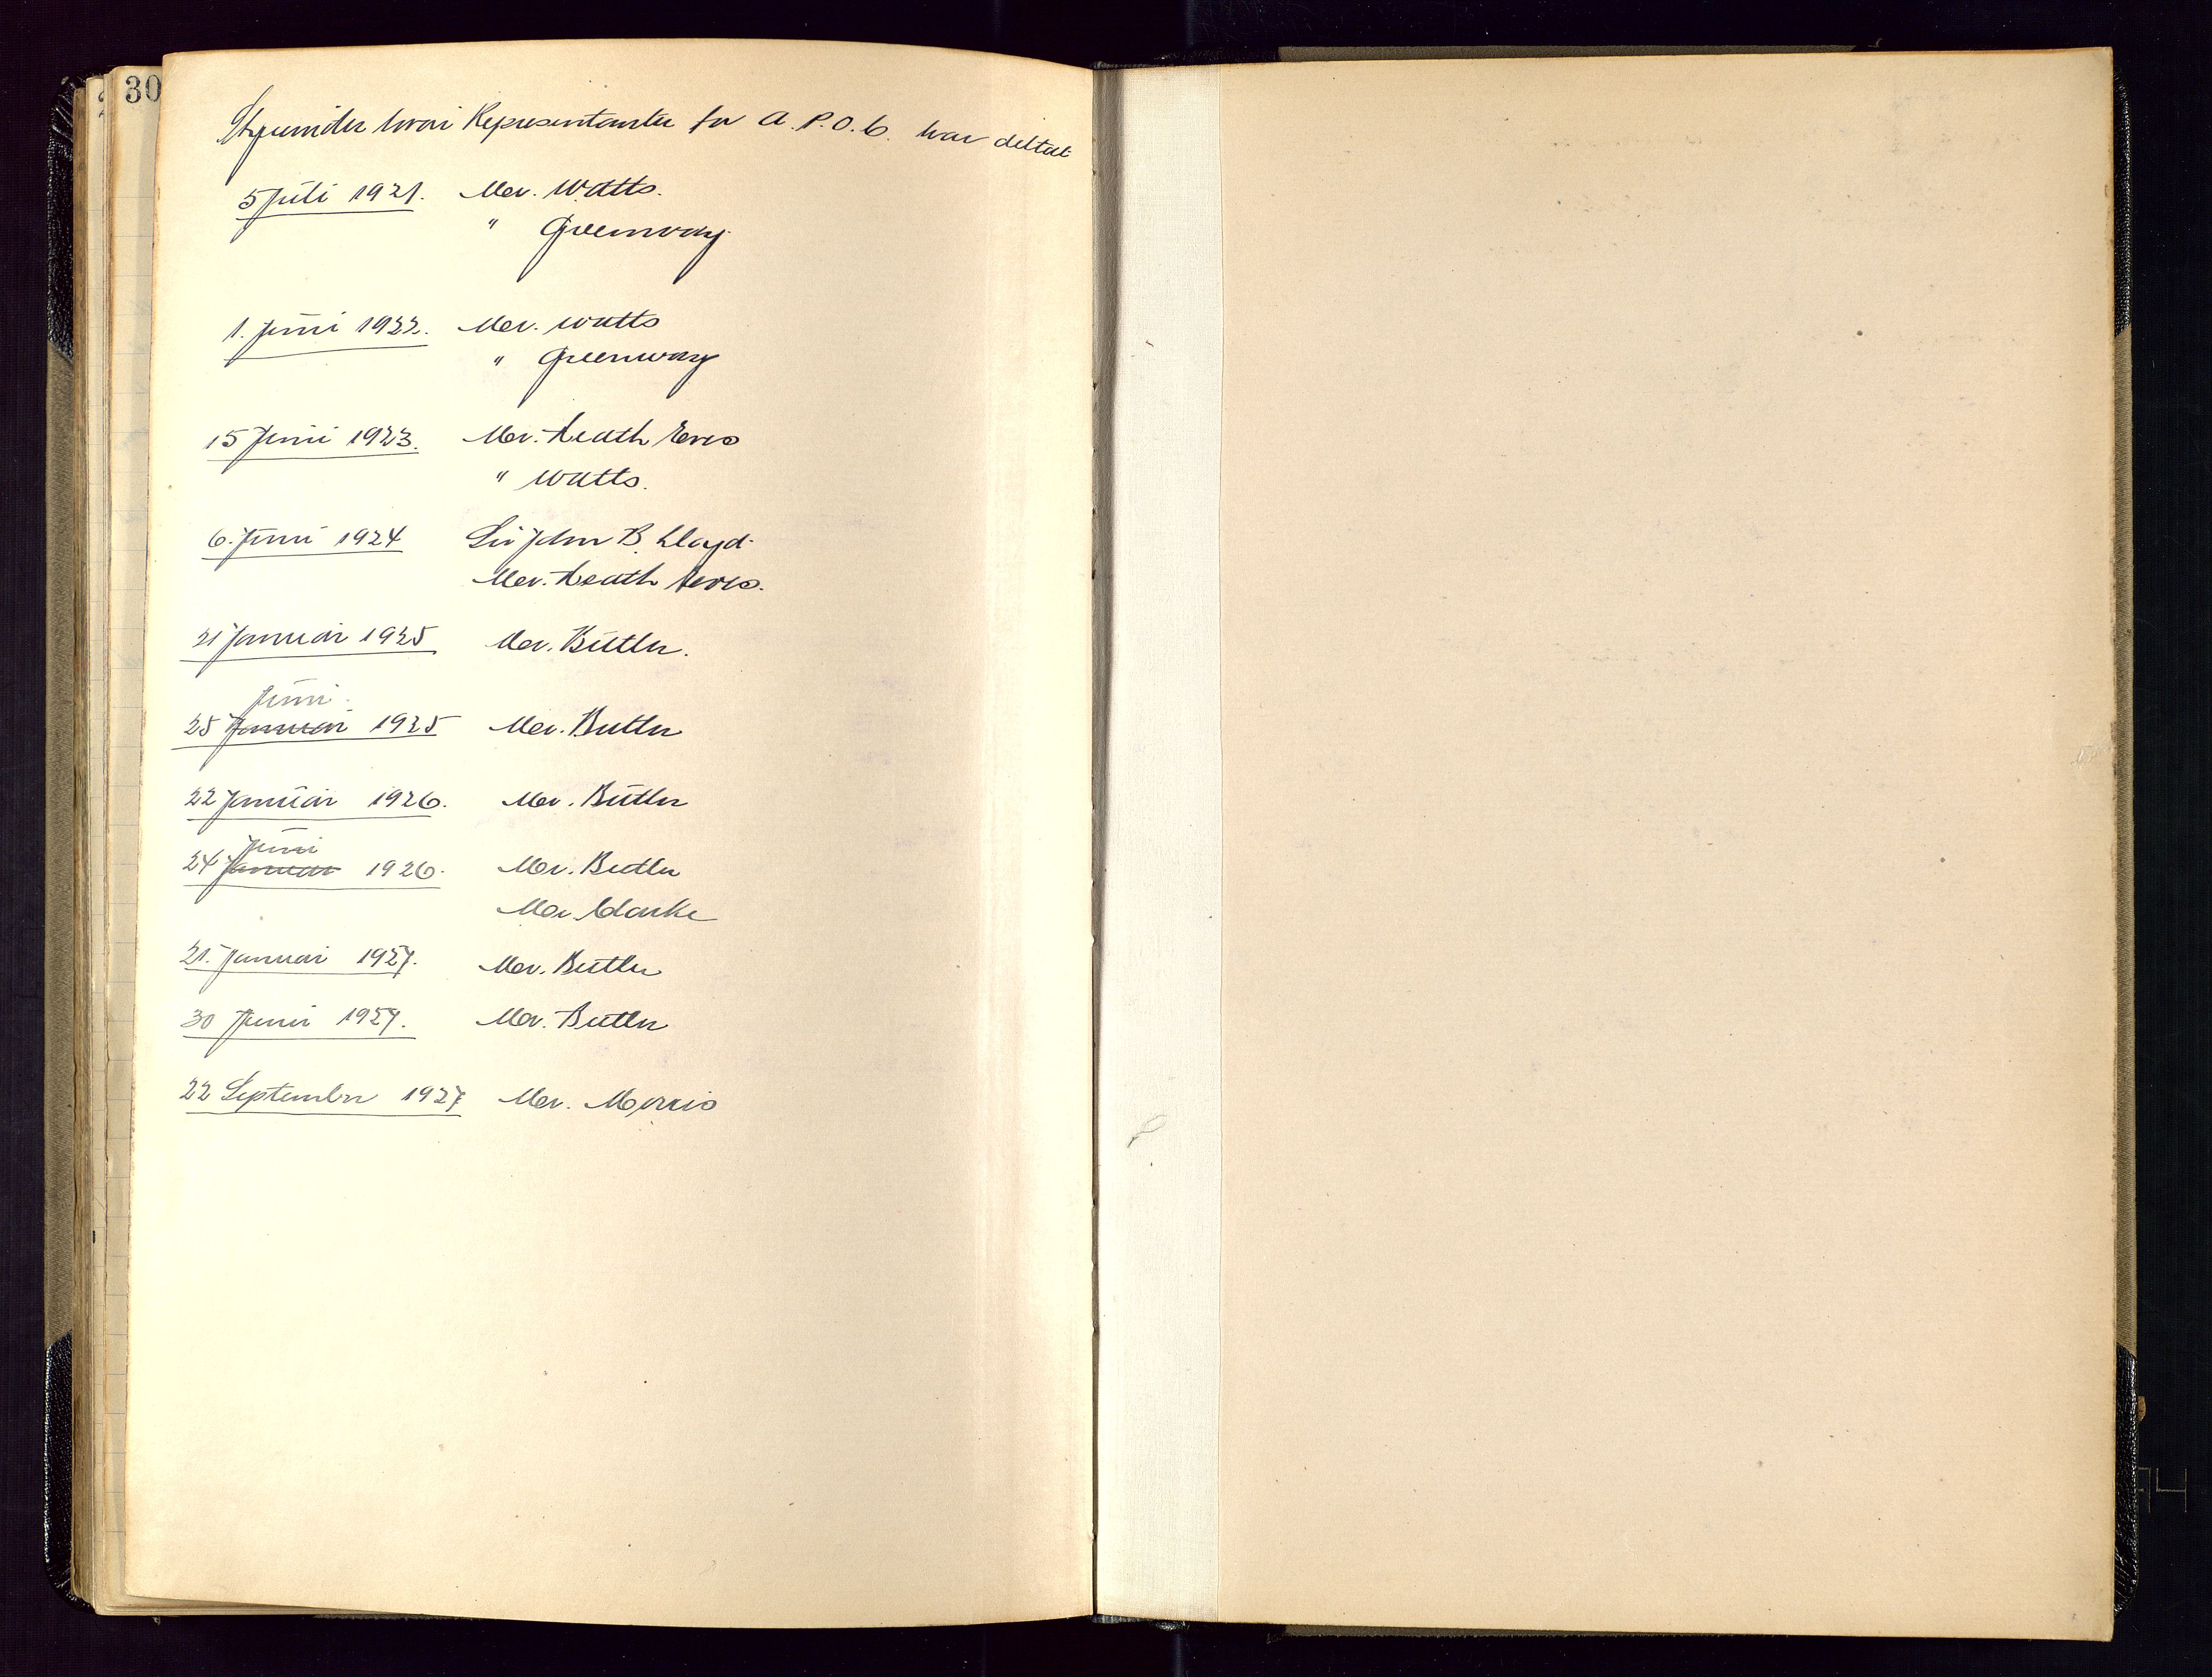 30
Styremöter hvori Representanter for A.P.O.C. har deltat
5 Juli 1921. Mr. Watts.
" Greenway.
1. Juni 1922. Mr. Watts
" Greenway
15 Juni 1923. Mr. Heath Eves
" Watts.
6. Juni 1924 Sir John B. Lloyd.
Mr. Heath Eves.
21 Januar 1925 Mr. Butler.
Juni
25 Januar 1925 Mr. Butler
22 Januar 1926. Mr. Butler
Juni
24 Januar 1926. Mr. Butler
Mr. Clarke
21. Januar 1927. Mr. Butler
30 Juni 1927. Mr. Butler
22 September 1927 Mr. Morris